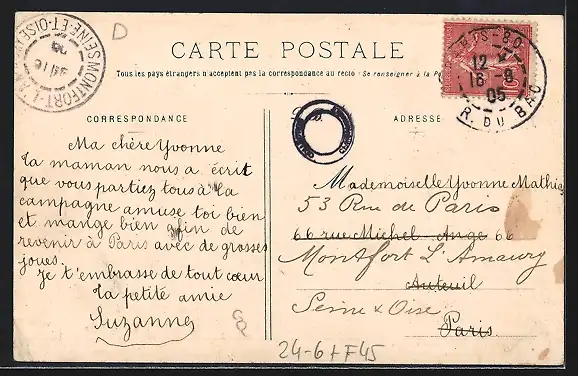 D
CARTE POSTALE
Tous les pays étrangers n'acceptent pas la correspondance au recto (Se renseigner à la
CORRESPONDANCE
ADRESSE
MONTFORT-L'A
SEINE-ET-OISE
PARIS-80
12
16-8
05
R. DU BAC
Ma chère Yvonne
Ta maman nous a écrit
que vous partiez tous à la
campagne amuse toi bien
et mange bien afin de
revenir à Paris avec de grosses
joues.
Je t'embrasse de tout cœur
Ta petite amie
Suzanne
Mademoiselle Yvonne Mathias
53 Rue de Paris
66 rue Michel-Ange 66
Montfort L'Amaury
Auteuil
Seine & Oise
Paris
24-6 FF45